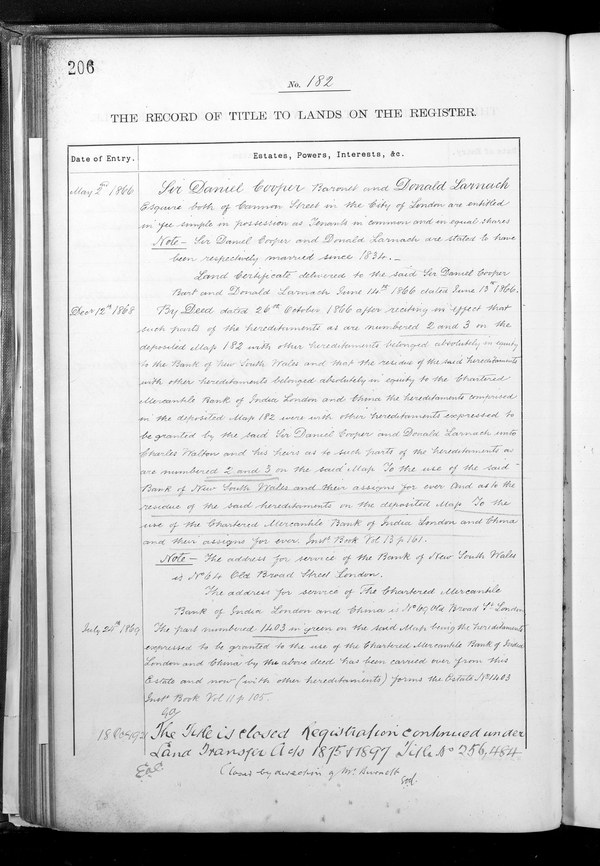 206
No. 182
THE RECORD OF TITLE TO LANDS ON THE REGISTER.
Date of Entry.
Estates, Powers, Interests, &c.
May 2nd 1866
Sir Daniel Cooper Baronet and Donald Larnach
Esquire both of Cannon Street in the City of London are entitled
in fee simple in possession as Tenants in common and in equal shares
Note - Sir Daniel Cooper and Donald Larnach are stated to have
been respectively married since 1834. _
Land Certificate delivered to the said Sir Daniel Cooper
Bart and Donald Larnach June 14th 1866 dated June 13th 1866.
Decr 12th 1868
By Deed dated 26th October 1866 after reciting in effect that
such parts of the hereditaments as are numbered 2 and 3 on the
deposited Map 182 with other hereditaments belonged absolutely in equity
to the Bank of New South Wales and that the residue of the said hereditaments
with other hereditaments belonged absolutely in equity to the Chartered
Mercantile Bank of India London and China the hereditaments comprised
in the deposited Map 182 were with other hereditaments expressed to
be granted by the said Sir Daniel Cooper and Donald Larnach unto
Charles Walton and his heirs as to such parts of the hereditaments as
are numbered 2 and 3 on the said Map To the use of the said
Bank of New South Wales and their assigns for ever And as to the
residue of the said hereditaments on the deposited Map To the
use of the Chartered Mercantile Bank of India London and China
and their assigns for ever. Inst. Book Vol 13 p 161.
Note - The address for service of the Bank of New South Wales
is No 64 Old Broad Street London.
The address for service of The Chartered Mercantile
Bank of India London and China is No 65 Old Broad St London
July 24th 1869
The part numbered 1403 in green on the said Map being the hereditaments
expressed to be granted to the use of the Chartered Mercantile Bank of India
London and China by the above deed has been carried over from this
Estate and now (with other hereditaments) forms the Estate No 1403
Inst. Book Vol 11 p 105.
The Title is closed Registration continued under
Land Transfer Acts 1875 & 1897 Title No 256,484
Closed by direction of Mr